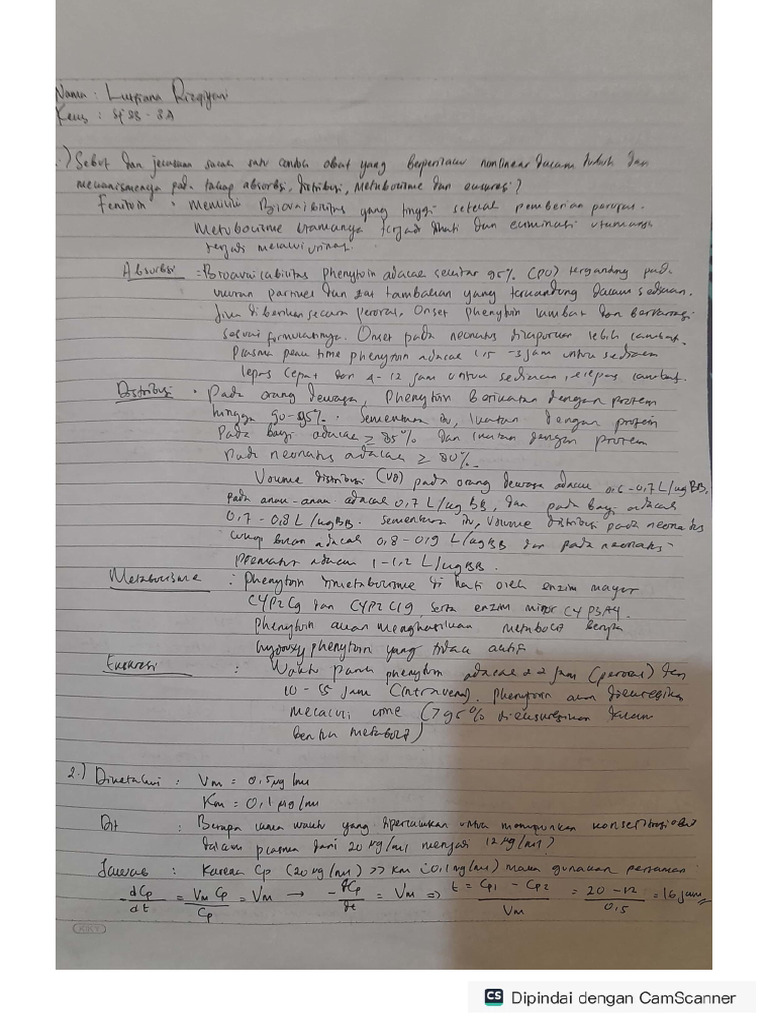 Nama :
Kelas : S1 3B - 3A
1.) Sebut dan jelaskan salah satu contoh obat yang berperilaku nonlinear dalam tubuh dan
mekanismenya pada tahap absorbsi, distribusi, metabolisme dan ekskresi?
Fenitoin : Memiliki Bioavaibilitas yang tinggi setelah pemberian peroral.
Metabolisme utamanya terjadi dihati dan eliminasi utamanya
terjadi melalui urinasi.
Absorbsi = Bioavailabilitas phenytoin adalah sekitar 95% (PO) tergantung pada
ukuran partikel dan zat tambahan yang terkandung dalam sediaan.
Jika diberikan secara peroral, Onset phenytoin lambat dan bervariasi
sesuai formulasinya. Onset pada neonatus dilaporkan lebih lambat.
Plasma peak time phenytoin adalah 1,5 - 3 jam untuk sediaan
lepas cepat dan 4 - 12 jam untuk sediaan lepas lambat.
Distribusi : Pada orang dewasa, Phenytoin berikatan dengan protein
hingga 90-95%. Sementara itu, ikatan dengan protein
Pada bayi adalah ≥ 85% dan ikatan dengan protein
Pada neonatus adalah ≥ 80%.
Volume distribusi (VD) pada orang dewasa adalah 0,6 - 0,7 L/kgBB,
pada anak-anak adalah 0,7 L/kgBB, dan pada bayi adalah
0,7 - 0,8 L/kgBB. Sementara itu, volume distribusi pada neonatus
cukup bulan adalah 0,8 - 0,9 L/kgBB dan pada neonatus
prematur adalah 1 - 1,2 L/kgBB.
Metabolisme : Phenytoin dimetabolisme di hati oleh enzim mayor
CYP2C9 dan CYP2C19 serta enzim minor CYP3A4.
Phenytoin akan menghasilkan metabolit berupa
hydroxyphenytoin yang tidak aktif
Ekskresi : Waktu paruh phenytoin adalah 22 jam (peroral) dan
10 - 15 jam (intravena). Phenytoin akan diekskresikan
melalui urine (>95% diekskresikan dalam
bentuk metabolit)
2.) Diketahui : Vm = 0,5 μg/ml
Km = 0,1 μg/ml
Dit : Berapa lama waktu yang diperlukan untuk menurunkan konsentrasi obat
dalam plasma dari 20 μg/ml menjadi 12 μg/ml?
Jawab : Karena Cp (20 μg/ml) >> Km (0,1 μg/ml) maka gunakan persamaan
-dCp/dt = Vm Cp/Cp = Vm → -dCp/dt = Vm ⇒ t = Cp1 - Cp2/Vm = 20 - 12/0,5 = 16 jam
KIKY
CS Dipindai dengan CamScanner